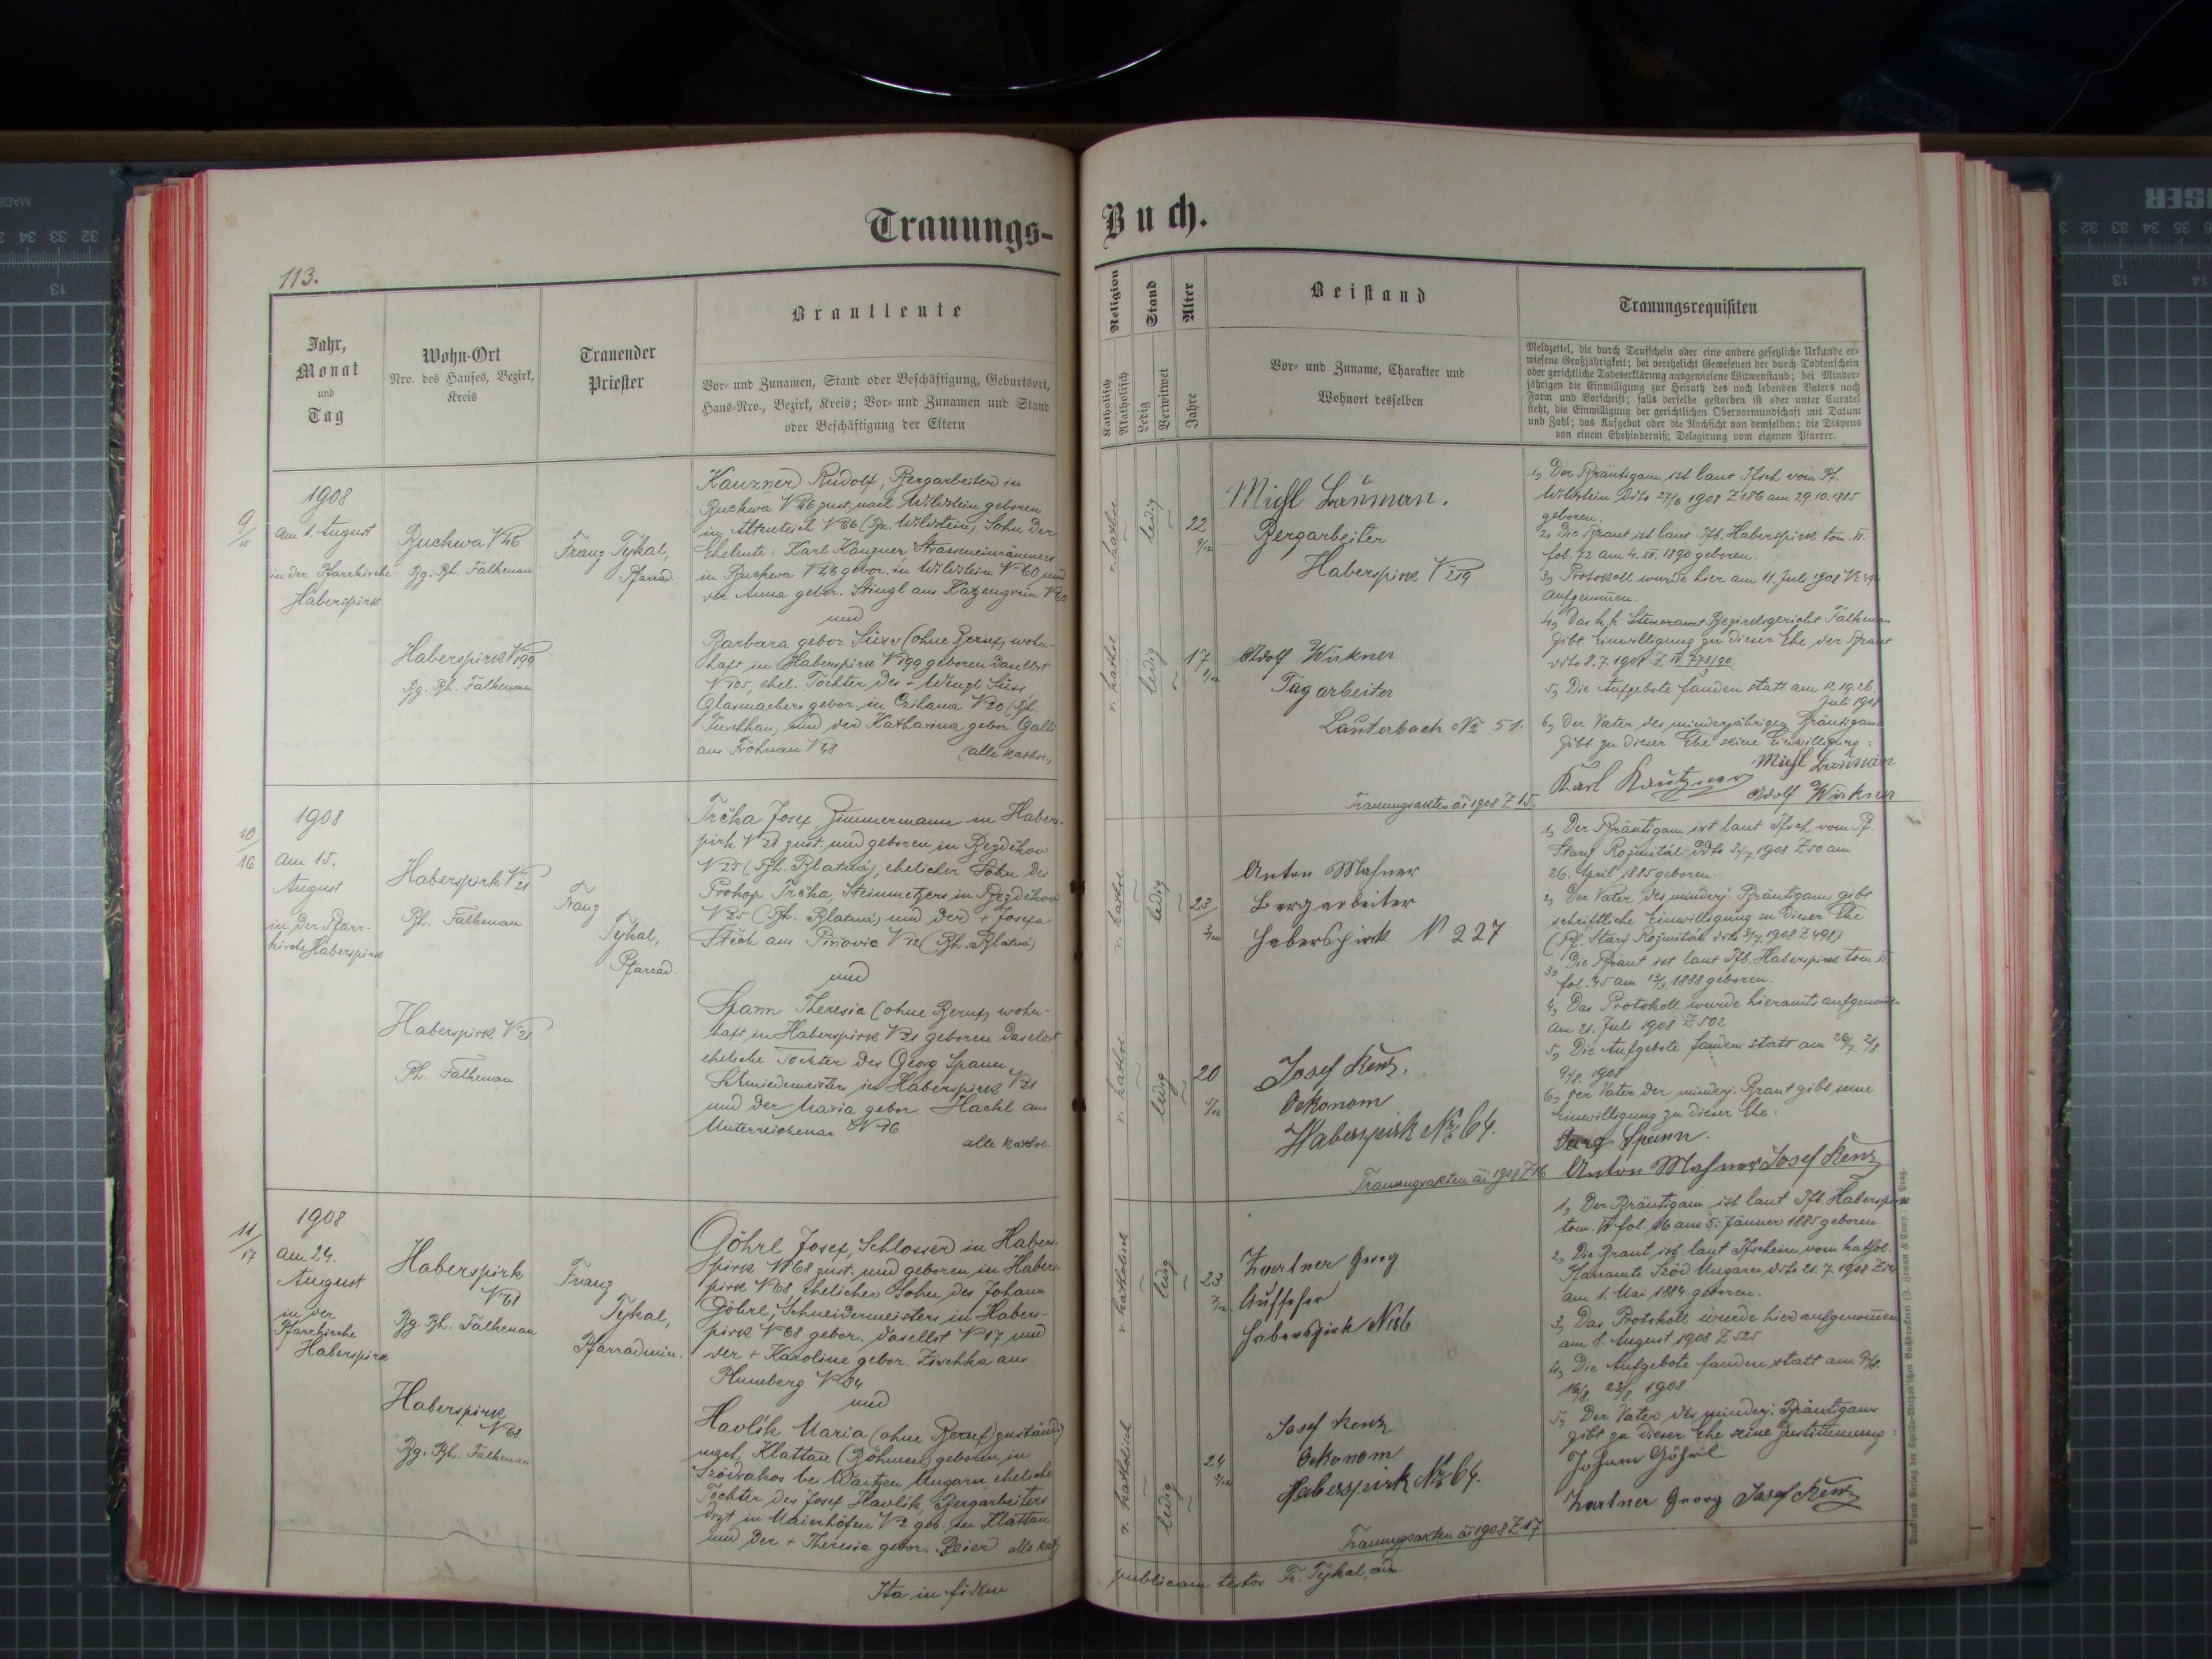 Trauungs-
113.
Jahr,
Monat
und
Tag
Wohn-Ort
Nro. des Hauses, Bezirk,
Kreis
Trauender
Priester
Brautleute
Vor- und Zunamen, Stand oder Beschäftigung, Geburtsort,
Haus-Nro., Bezirk, Kreis; Vor- und Zunamen und Stand
oder Beschäftigung der Eltern
9/15
1908
am 1. August
in der Pfarrkirche
Haberspirk
Buckwa N 46
Bg. Bh. Falkenau
Haberspirk N 199
Bg. Bh. Falkenau
Franz Tykal,
Pfarrad.
Kauzner Rudolf, Bergarbeiter in
Buckwa N 46 zust. nach Wildstein geboren
in Altenteich N 66 (Bz. Wildstein), Sohn der
Eheleute: Karl Kauzner, Strasseneinräumers
in Buckwa N 46 gebor. in Wildstein N 60 und
der Anna gebor. Stingl aus Katzengrün
und
Barbara gebor Süss (ohne Beruf) wohn-
haft in Haberspirk N 199 geboren daselbst
N 105, ehel. Tochter des + Wenzl Süss
Glasmachers gebor. in Czihana N 20 (Bh.
Tuschkau) und der Katharina gebor Galli
aus Fröhnau N 48 (alle kathol.)
10/16
1908
am 15.
August
in der Pfarr-
kirche Haberspirk
Haberspirk N 21
Bh. Falkenau
Haberspirk N 21
Bh. Falkenau
Franz
Tykal,
Pfarrad.
Trčka Josef Zimmermann in Habers-
pirk N 21 zust. und geboren in Bezděkov
N 25 (Bh. Blatná), ehelicher Sohn des
Prokop Trčka, Steinmetzers in Bezděkov
N 25 (Bh. Blatná) und der + Josefa
aus N 12 (Bh. Blatná)
und
Spann Theresia (ohne Beruf) wohn-
haft in Haberspirk N 21 geboren daselbst
eheliche Tochter des Georg Spann
Schmiedemeisters in Haberspirk N 21
und der Maria gebor. Hackl aus
Unterreichenau N 16
alle kathol.
11/17
1908
am 24.
August
in der
Pfarrkirche
Haberspirk
Haberspirk
N 68
Bg. Bh. Falkenau
Haberspirk
N 68
Bg. Bh. Falkenau
Franz
Tykal,
Pfarradmin.
Göhrl Josef, Schlosser in Habers-
pirk N 68 zust. und geboren in Habers-
pirk N 68, ehelicher Sohn des Johann
Göhrl, Schneidermeisters in Habers-
pirk N 68 gebor. daselbst N 17 und
der + Karoline gebor. Zischka aus
Plumberg N 04
und
Havlik Maria (ohne Beruf) zuständig
nach Klattau (Böhmen) geboren in
Szödrakos bei Waitzen Ungarn, eheliche
Tochter des Josef Havlik, Bergarbeiters
dzt in Maierhöfen N 2 geb. in Klattau
und der + Theresia gebor. Beier alle kath
Ita in fidem
Buch.
Religion
Katholisch
Akatholisch
Stand
Ledig
Verwitwet
Alter
Jahre
Beistand
Vor- und Zuname, Charakter und
Wohnort desselben
Trauungsrequisiten
Meldzettel, die durch Taufschein oder eine andere gesetzliche Urkunde er-
wiesene Großjährigkeit; bei verehelicht Gewesenen der durch Todtenschein
oder gerichtliche Todeserklärung ausgewiesene Witwenstand; bei Minder-
jährigen die Einwilligung zur Heirath des noch lebenden Vaters nach
Form und Vorschrift; falls derselbe gestorben ist oder unter Curatel
steht, die Einwilligung der gerichtlichen Obervormundschaft mit Datum
und Zahl; das Aufgebot oder die Nachsicht von demselben; die Dispens
von einem Ehehinderniß; Delegirung vom eigenen Pfarrer.
r. kathol.
ledig
22 9/12
r. kathol.
ledig
17 8/12
Michl Bauman.
Bergarbeiter
Haberspirk N 219
Adolf Wirkner
Tagarbeiter
Lauterbach No 51.
Trauungsakten ai 1908 Z 15.
1, Der Bräutigam ist laut Tfsch vom Pf.
Wildstein ddto 27/6 1908 Z 186 am 29.10.1885
geboren.
2, Die Braut ist laut Tfb. Haberspirk tom. VI.
fol. 22 am 4. XI. 1890 geboren.
3, Protokoll wurde hier am 11. Juli 1908
aufgenommen.
4, Das k.k. Steueramt Bezirksgericht Falkenau
gibt Einwilligung zu dieser Ehe der Braut
ddto 8.7.1908 Z. IV 773/90
5, Die Aufgebote fanden statt am 12. 19. 26.
Juli 1908
6, Der Vater des minderjährigen Bräutigams
gibt zu dieser Ehe seine Einwilligung:
Michl Bauman
Karl Kautzner
Adolf Wirkner
r. kathol.
ledig
23 3/12
r. kathol.
ledig
20 5/12
Anton Mahner
Bergarbeiter
Haberspirk N 227
Josef Kenz.
Oekonom
Haberspirk Nr 64.
Trauungsakten ai 1908 Z 16
1, Der Bräutigam ist laut Tfsch. vom Pf.
Starý Rožmitál ddto 3/7. 1908 Z 50 am
26. April 1885 geboren.
2, Der Vater des minderj. Bräutigams gibt
schriftliche Einwilligung zu dieser Ehe
(Pf. Starý Rožmitál ddto 3/7. 1908 Z 498)
3, Die Braut ist laut Tfb. Haberspirk tom. VI.
fol. 45 am 1888 geboren.
4, Das Protokoll wurde hieramts aufgenommen
am 21. Juli 1908 Z 502
5, Die Aufgebote fanden statt am 26/7. 2/8
9/8. 1908
6, Der Vater der minderj. Braut gibt seine
Einwilligung zu dieser Ehe:
Georg Spann.
Anton Mahner Josef Kenz
r. katholisch
ledig
23 7/12
r. katholisch
ledig
24 3/12
Zartner Georg
Aufseher
Haberspirk
Josef Kenz
Oekonom
Haberspirk Nr 64.
Trauungsakten ai 1908 Z 17
1, Der Bräutigam ist laut Tfb. Haberspirk
tom. fol. 16 am 5. Jänner 1885 geboren.
2, Die Braut ist laut Tfschein vom kathol.
Pfarramte Sződ Ungarn ddto 21. 7. 1908
am 1. Mai 1884 geboren.
3, Das Protokoll wurde hier aufgenommen
am 8. August 1908 Z 525
4, Die Aufgebote fanden statt am 9/8.
16/8. 23/8. 1908
5, Der Vater des minderj. Bräutigams
gibt zu dieser Ehe seine Zustimmung:
Johann Göhrl
Zartner Georg Josef Kenz
publicam testor Fr. Tykal, adm.